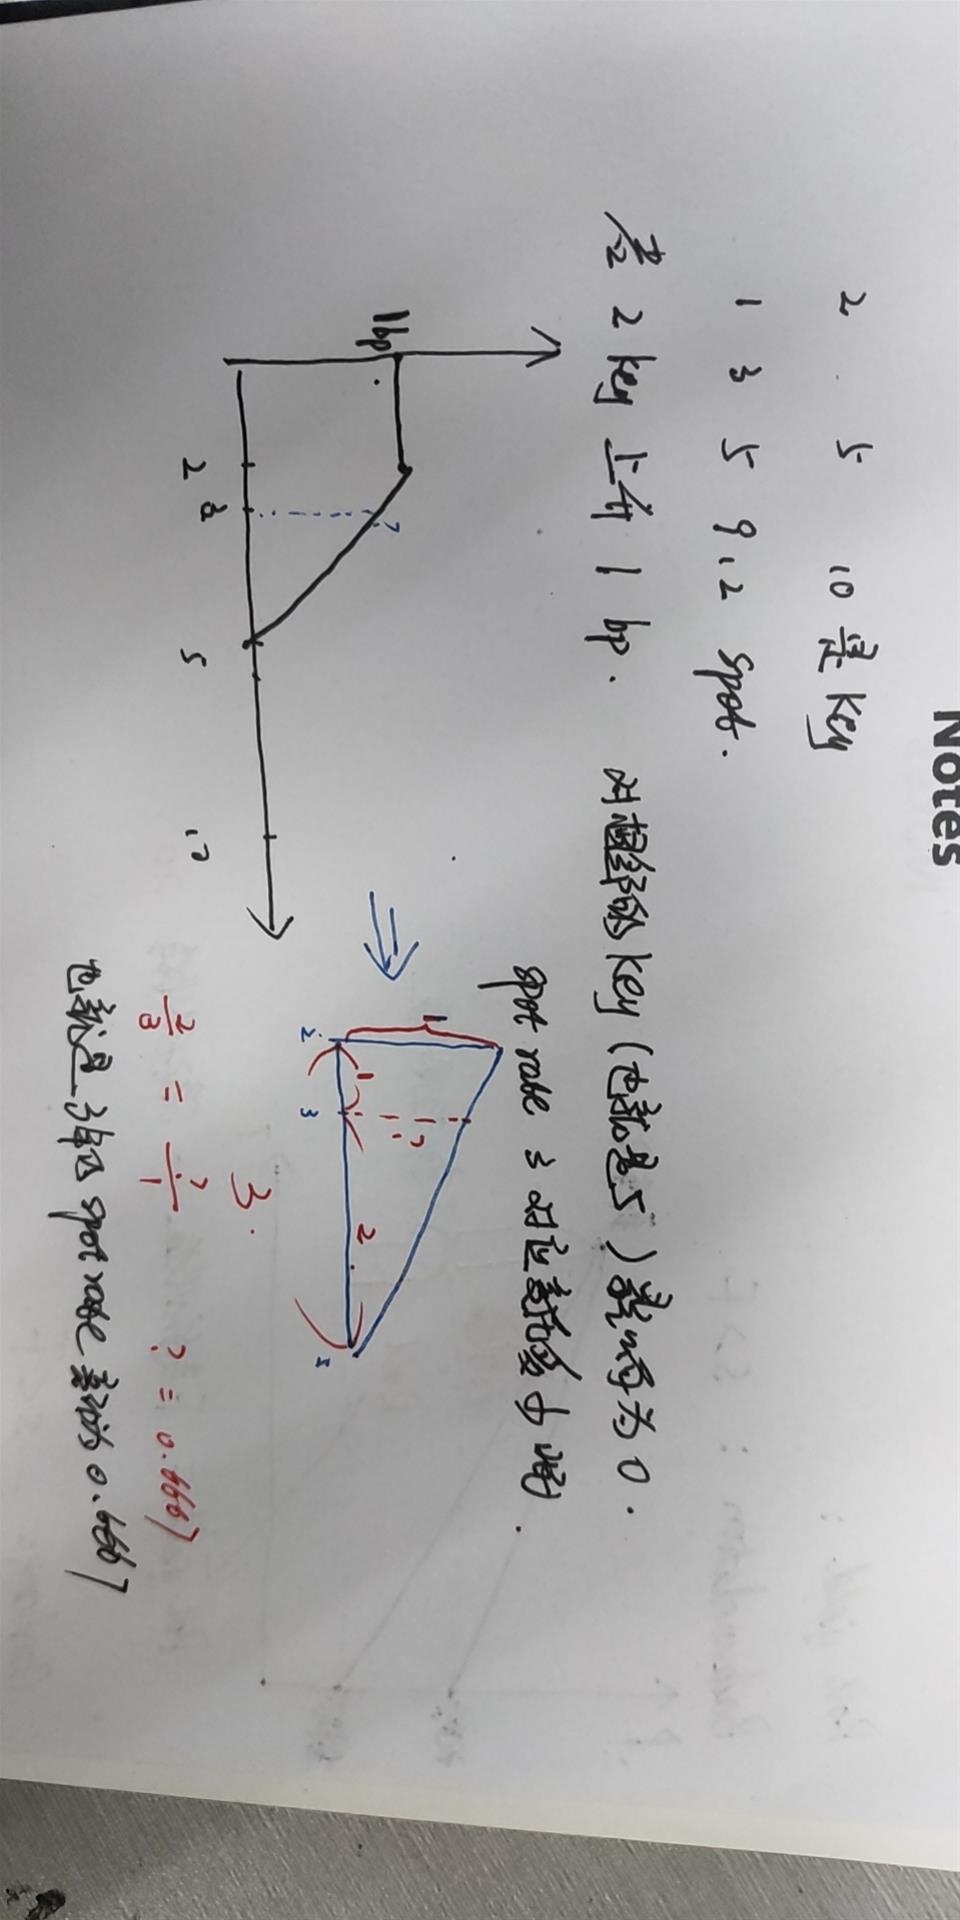 Notes
2 5 10 是 key
1 3 5 9.2 spot.
若 2 key 上升 1 bp. 对相邻的 key (也就是5) 影响为 0.
spot rate 3 对应变动多少呢.
1bp
?
2 3 5 10
1
1 ? 2
2 3 5
3.
2/3 = ?/1 ? = 0.6667
也就是 3年的 spot rate 变动为 0.6667